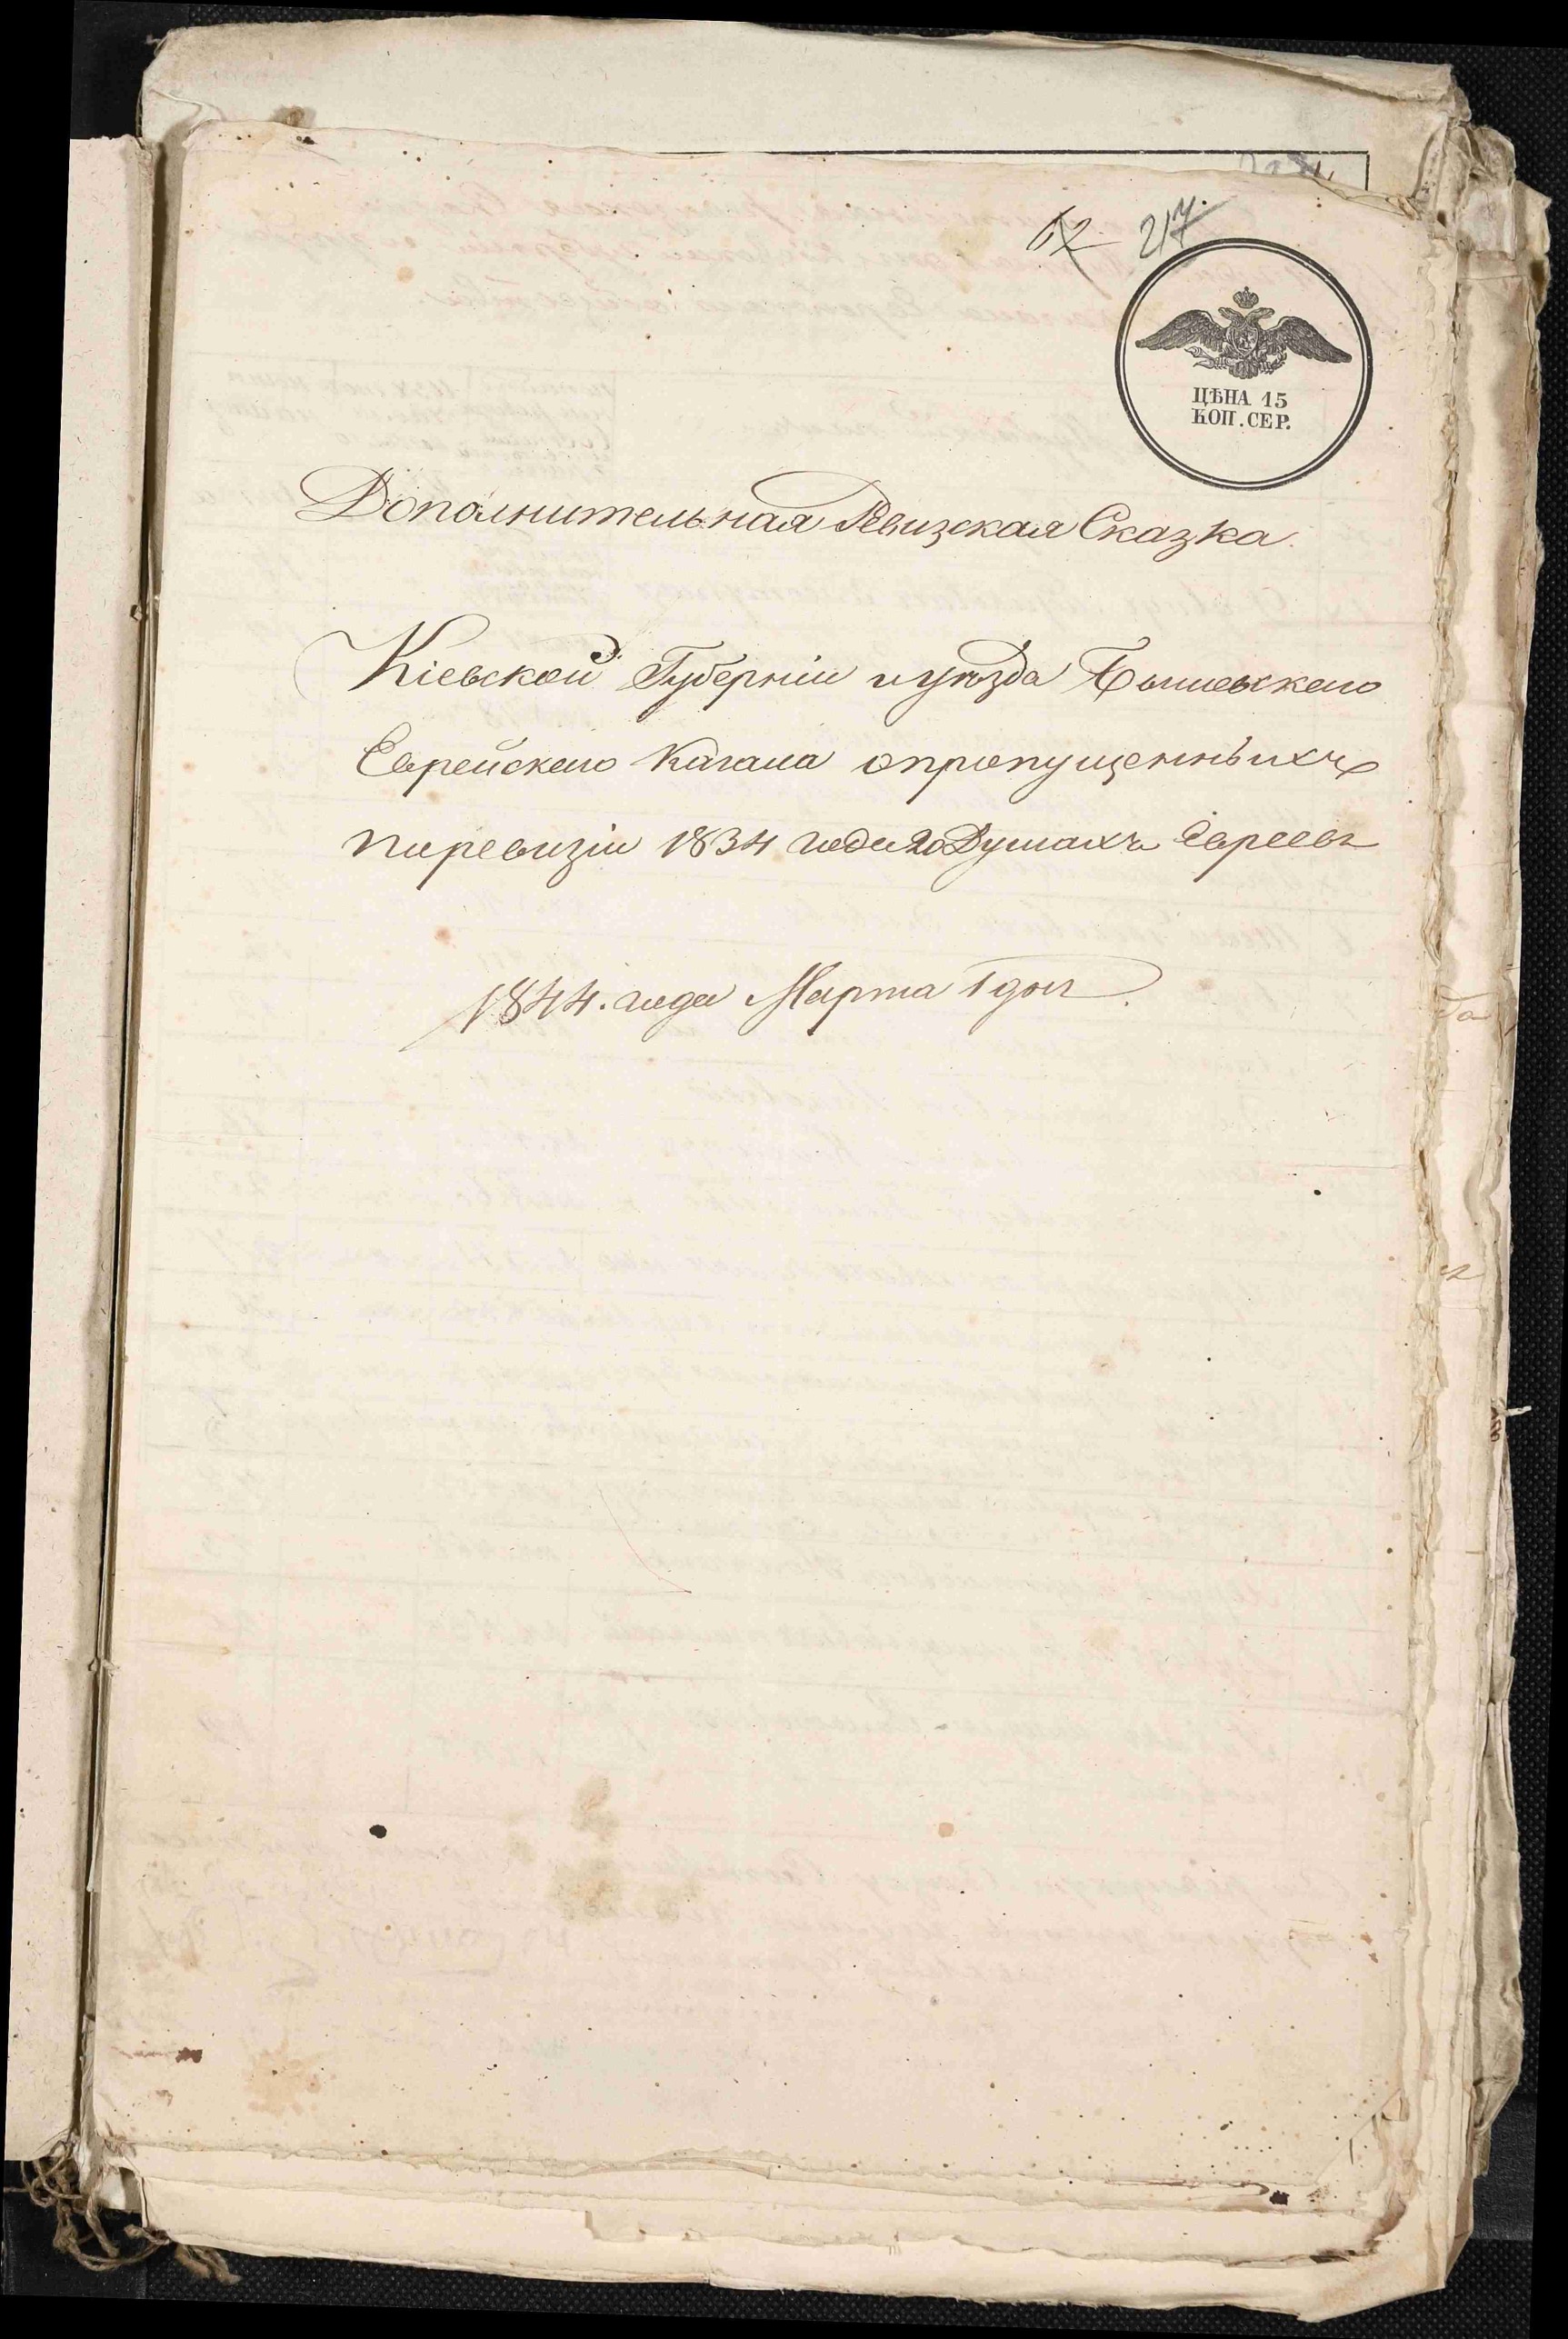 62. 217.
ЦѢНА 15
КОП. СЕР.
Дополнительная Ревизская Сказка.
Кіевской Губерніи и уѣзда Бышевскаго
Еврейскаго Кагала опропущенныхъ
поревизіи 1834 года 20 Душахъ Евреевъ
1844. года Марта 1 дня.